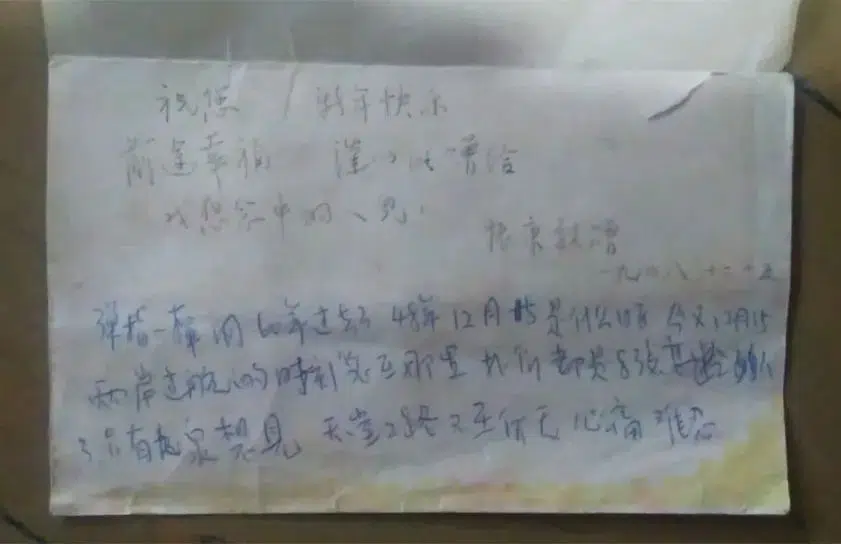 祝您 新年快乐
前途幸福 谨以此赠给
我想念中的人儿
敬赠
一九四八 十二 十五
弹指一挥间60年过去了 48年12月15是什么日子 今又12月15
两岸通航的时刻您在那里 我们都是8
了只有九泉想见 天堂之路又在何方 心痛难忍